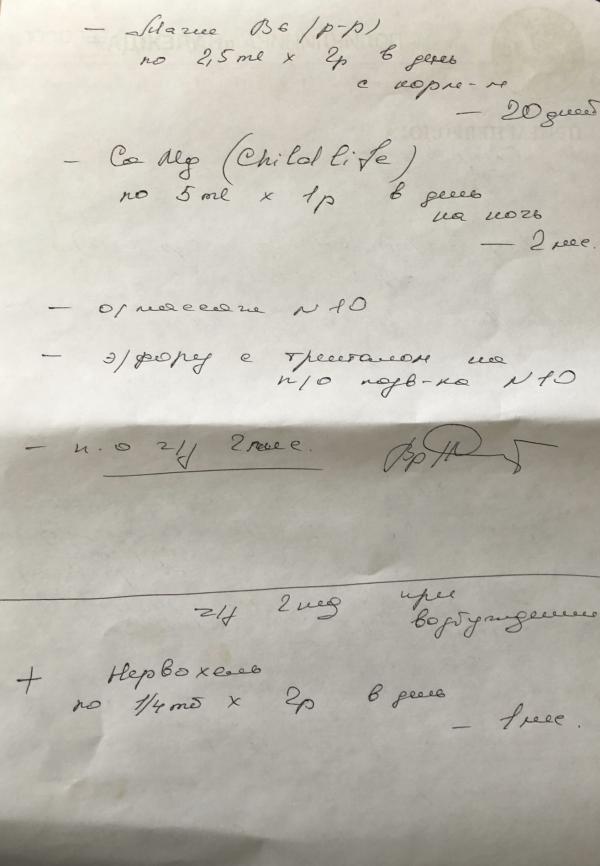 — Магне B6 (р-р)
по 2,5 ml x 2р в день
с кормл-м
— 20 дней
— Ca Mg (Child life)
по 5 ml x 1р в день
на ночь
— 2 мес.
— о/массаж N10
— э/форез с тренталом на
п/о позв-ка N10
— к.о ч/з 2 мес.
ч/з 2 нед при
возбуждении
+ Нервохель
по 1/4 тб x 2р в день
— 1 мес.